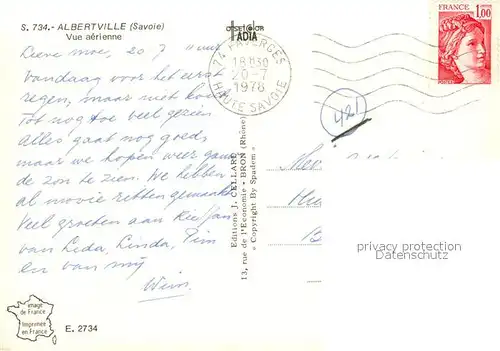 S. 734.- ALBERTVILLE (Savoie)
Vue aérienne
Lieve moe, 20 7 uur
Vandaag voor het eerst
regen, maar niet
Tot nog toe veel gezien
Alles gaat nog goed,
maar we hopen weer gauw
de zon te zien. We hebben
al mooie ritten gemaakt
Veel groeten aan
van Lida, Linda, Pim
en van mij
Wim
image
de France
Imprimée
en France
E. 2734
Editions J. CELLARD
13, rue de l'Economie - BRON (Rhône)
« Copyright By Spadem »
74 FAVERGES
18H30
20-7
1978
HAUTE SAVOIE
FRANCE
1,00
421
privacy protection
Datenschutz